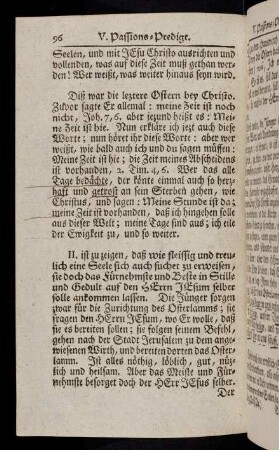 96 V. Passions-Predigt.
Seelen, und mit JEsu Christo ausrichten und
vollenden, was auf diese Zeit muß gethan wer-
den! Wer weißt, was weiter hinaus seyn wird.
Diß war die leztere Ostern bey Christo.
Zuvor sagte Er allemal: meine Zeit ist noch
nicht, Joh. 7, 6. aber jezund heißt es: Mei-
ne Zeit ist hie. Nun erklärt ich jezt auch diese
Worte; nun höret ihr diese Worte: aber wer
weißt, wie bald auch ich und du sagen müssen:
Meine Zeit ist hie; die Zeit meines Abscheidens
ist vorhanden, 2. Tim. 4, 6. Wer das alle
Tage bedächte, der könte einmal auch so herz-
haft und getrost an sein Sterben gehen, wie
Christus, und sagen: Meine Stunde ist da;
meine Zeit ist vorhanden, daß ich hingehen solle
aus dieser Welt; meine Tage sind aus; ich eile
der Ewigkeit zu, und so weiter.
II. ist zu zeigen, daß wie fleissig und treu-
lich eine Seele sich auch suchet zu erweisen,
sie doch das Fürnehmste und Beste in Stille
und Gedult auf den HErrn JEsum selber
solle ankommen lassen. Die Jünger sorgen
zwar für die Zurichtung des Osterlamms; sie
fragen den HErrn JEsum, wo Er wolle, daß
sie es bereiten sollen; sie folgen seinem Befehl,
gehen nach der Stadt Jerusalem zu dem ange-
wiesenen Wirth, und bereiten dorten das Oster-
lamm. Ist alles nöthig, löblich, gut, nüz-
lich und heilsam. Aber das Meiste und Für-
nehmste besorget doch der HErr JEsus selber.
Der